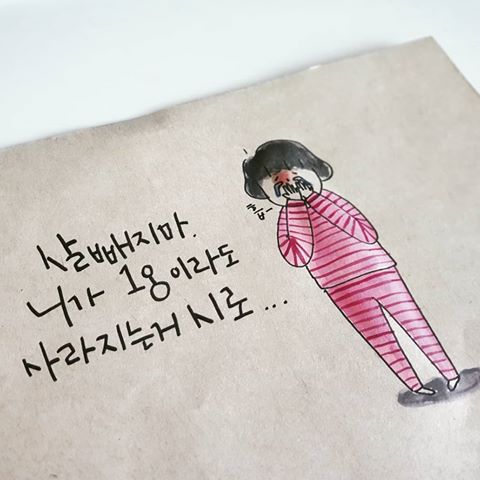 살빼지마.
니가 1g이라도
사라지는거 시로...
흡-